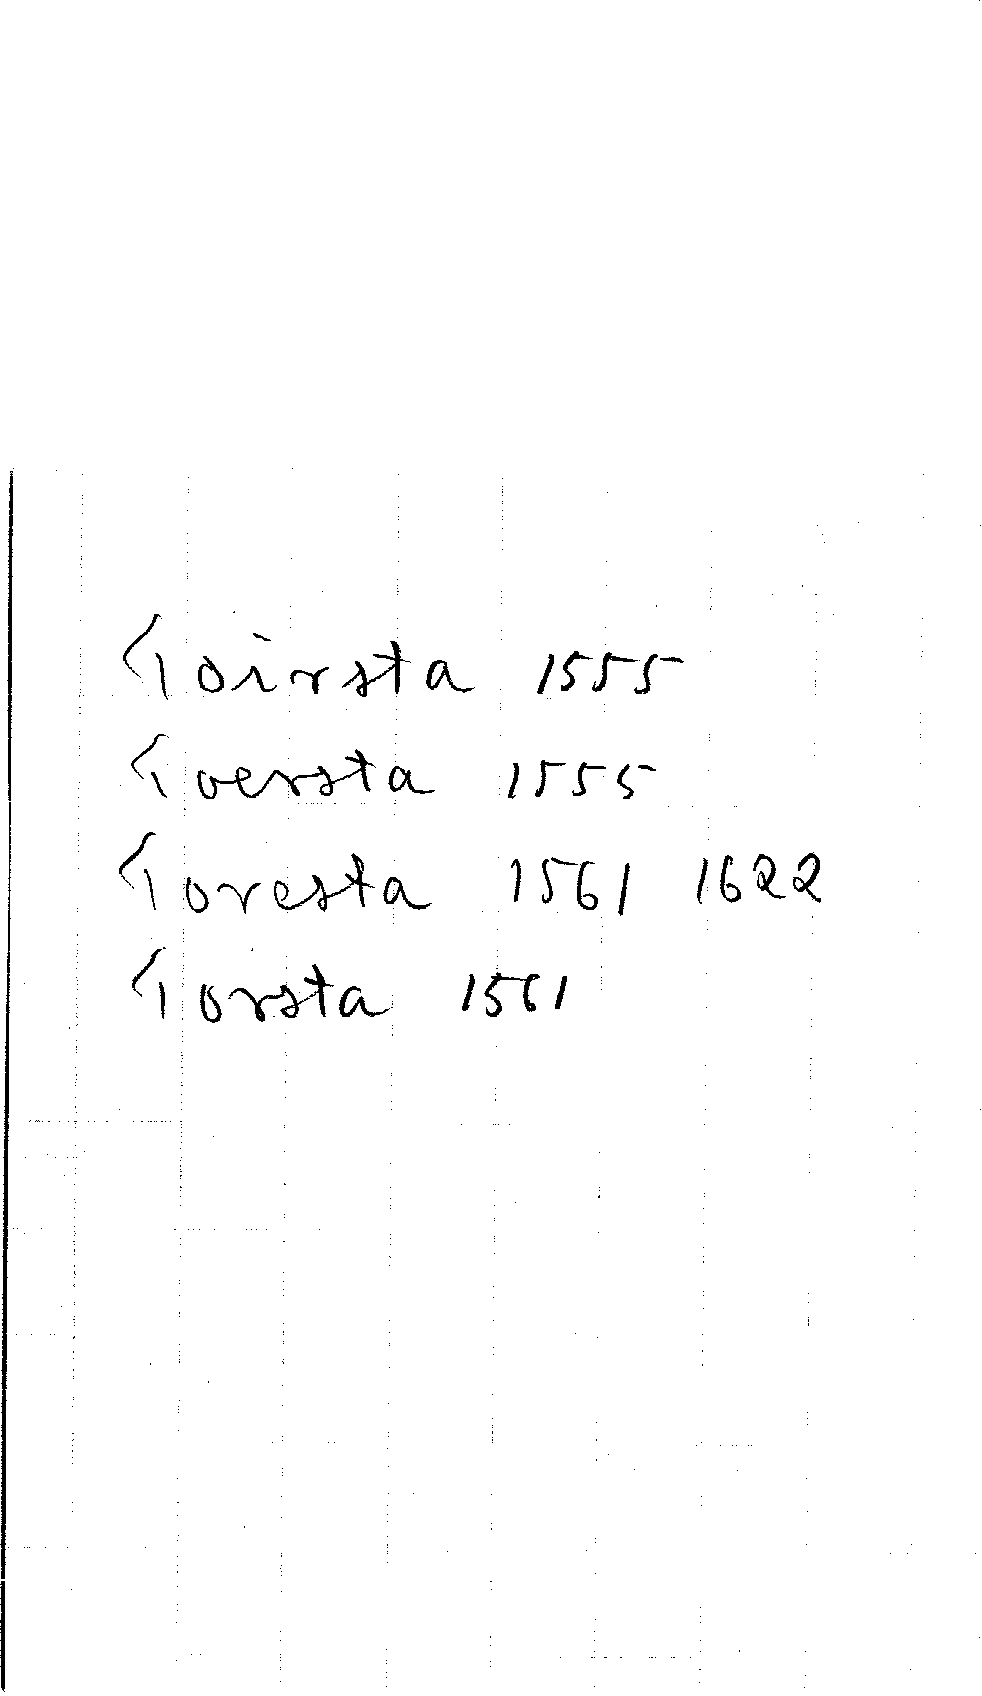 Toirsta 1555
Toersta 1555
Toresta 1561 1622
Torsta 1561